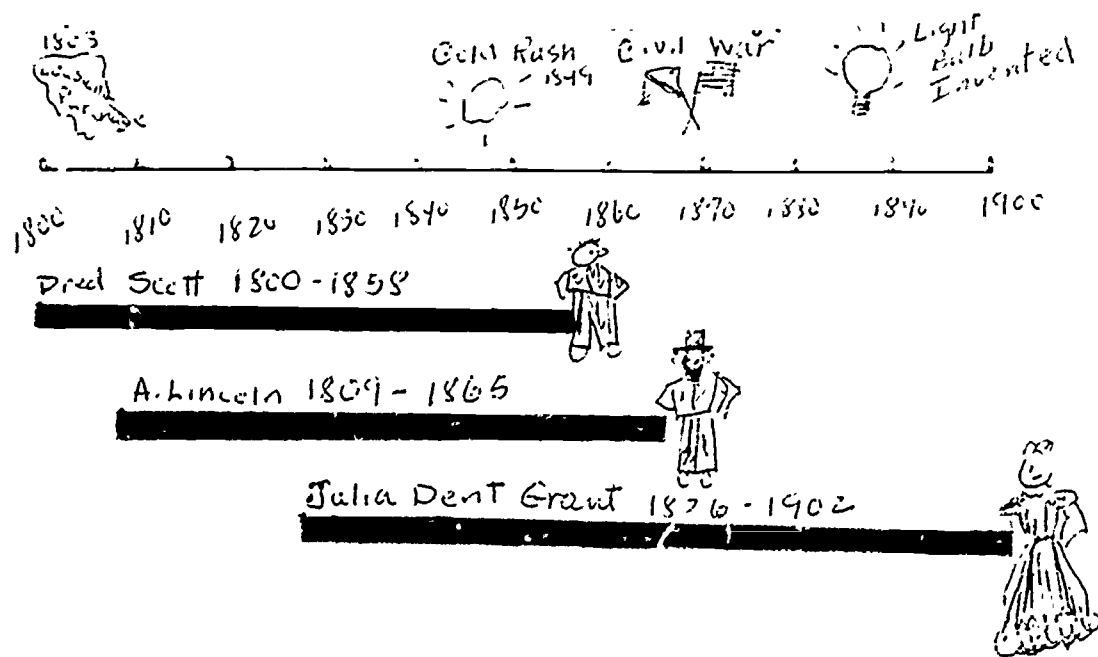 1803
Louisiana
Purchase
Gold Rush
1849
Civil War
Light
Bulb
Invented
1800 1810 1820 1830 1840 1850 1860 1870 1880 1890 1900
Dred Scott 1800-1858
A. Lincoln 1809-1865
Julia Dent Grant 1826-1902